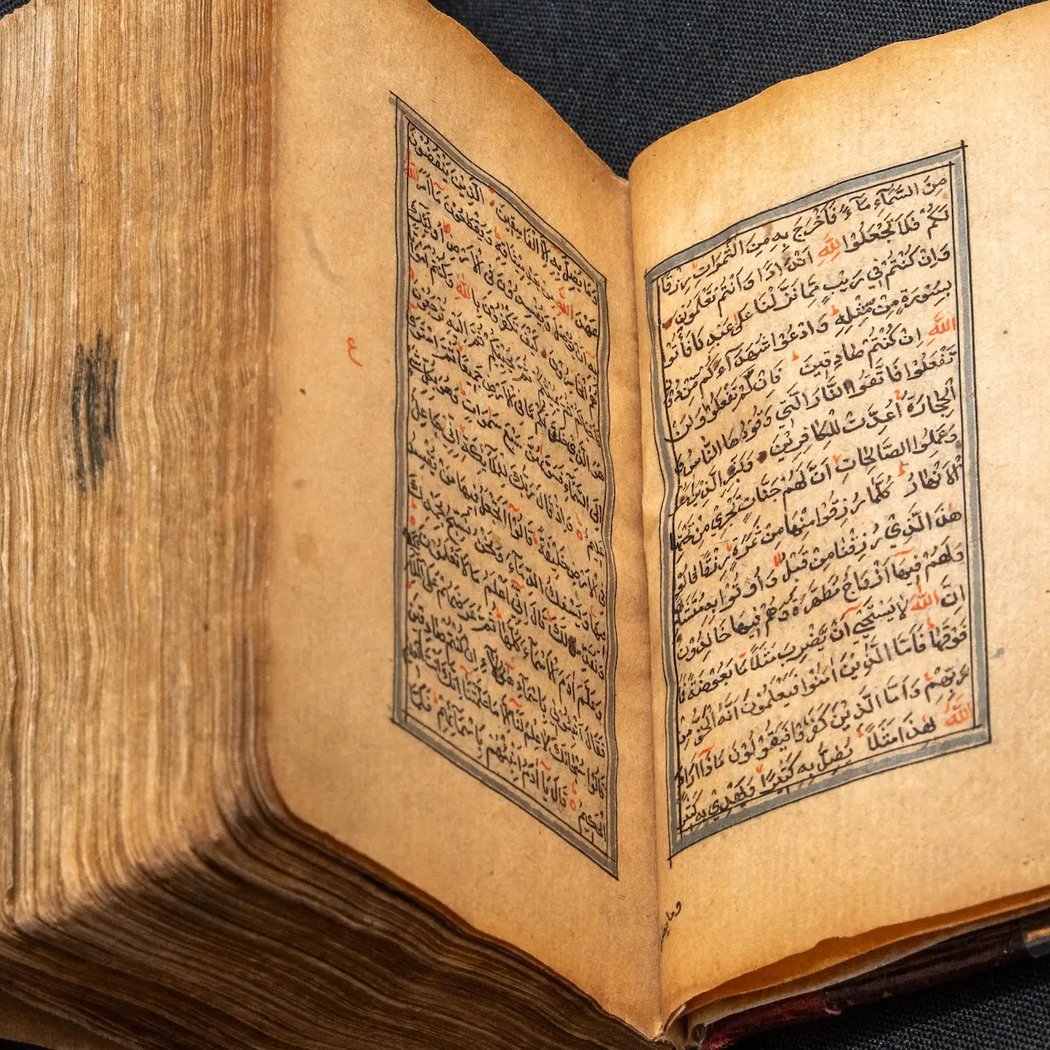 مِنَ السَّمَآءِ مَآءً فَاَخْرَجَ بِهِ مِنَ الثَّمَرَاتِ رِزْقًا
لَكُمْ فَلَا تَجْعَلُوْا لِلّٰهِ اَنْدَادًا وَاَنْتُمْ تَعْلَمُوْنَ
وَاِنْ كُنْتُمْ فِيْ رَيْبٍ مِمَّا نَزَّلْنَا عَلٰى عَبْدِنَا فَأْتُوْا
بِسُوْرَةٍ مِنْ مِثْلِهِ وَادْعُوْا شُهَدَآءَكُمْ مِنْ دُوْنِ
اللّٰهِ اِنْ كُنْتُمْ صَادِقِيْنَ فَاِنْ لَمْ تَفْعَلُوْا وَلَنْ
تَفْعَلُوْا فَاتَّقُوا النَّارَ الَّتِيْ وَقُوْدُهَا النَّاسُ وَ
الْحِجَارَةُ اُعِدَّتْ لِلْكَافِرِيْنَ وَبَشِّرِ الَّذِيْنَ
وَعَمِلُوا الصَّالِحَاتِ اَنَّ لَهُمْ جَنَّاتٍ تَجْرِيْ مِنْ تَحْتِهَا
الْاَنْهَارُ كُلَّمَا رُزِقُوْا مِنْهَا مِنْ ثَمَرَةٍ رِزْقًا قَالُوْا
هٰذَا الَّذِيْ رُزِقْنَا مِنْ قَبْلُ وَاُتُوْا بِهِ مُتَشَابِهًا
وَلَهُمْ فِيْهَا اَزْوَاجٌ مُطَهَّرَةٌ وَهُمْ فِيْهَا خَالِدُوْنَ
اِنَّ اللّٰهَ لَا يَسْتَحْيِيْ اَنْ يَضْرِبَ مَثَلًا مَا بَعُوْضَةً فَمَا
فَوْقَهَا فَاَمَّا الَّذِيْنَ اٰمَنُوْا فَيَعْلَمُوْنَ اَنَّهُ الْحَقُّ مِنْ
رَبِّهِمْ وَاَمَّا الَّذِيْنَ كَفَرُوْا فَيَقُوْلُوْنَ مَاذَا اَرَادَ
اللّٰهُ بِهٰذَا مَثَلًا يُضِلُّ بِهِ كَثِيْرًا وَيَهْدِيْ بِهِ كَثِيْرًا
وما يضل
وَمَا يُضِلُّ بِهِ اِلَّا الْفَاسِقِيْنَ الَّذِيْنَ يَنْقُضُوْنَ
عَهْدَ اللّٰهِ مِنْ بَعْدِ مِيْثَاقِهِ وَيَقْطَعُوْنَ مَا اَمَرَ اللّٰهُ
بِهِ اَنْ يُوْصَلَ وَيُفْسِدُوْنَ فِي الْاَرْضِ اُولٰئِكَ
هُمُ الْخَاسِرُوْنَ كَيْفَ تَكْفُرُوْنَ بِاللّٰهِ وَكُنْتُمْ اَمْوَاتًا
فَاَحْيَاكُمْ ثُمَّ يُمِيْتُكُمْ ثُمَّ يُحْيِيْكُمْ ثُمَّ اِلَيْهِ تُرْجَعُوْنَ
هُوَ الَّذِيْ خَلَقَ لَكُمْ مَا فِي الْاَرْضِ جَمِيْعًا ثُمَّ اسْتَوٰى
اِلَى السَّمَآءِ فَسَوّٰيهُنَّ سَبْعَ سَمٰوَاتٍ وَهُوَ بِكُلِّ شَيْءٍ
عَلِيْمٌ وَاِذْ قَالَ رَبُّكَ لِلْمَلٰٓئِكَةِ اِنِّيْ جَاعِلٌ
فِي الْاَرْضِ خَلِيْفَةً قَالُوْا اَتَجْعَلُ فِيْهَا مَنْ يُفْسِدُ
فِيْهَا وَيَسْفِكُ الدِّمَآءَ وَنَحْنُ نُسَبِّحُ بِحَمْدِكَ
وَنُقَدِّسُ لَكَ قَالَ اِنِّيْ اَعْلَمُ مَا لَا تَعْلَمُوْنَ
وَعَلَّمَ اٰدَمَ الْاَسْمَآءَ كُلَّهَا ثُمَّ عَرَضَهُمْ عَلَى الْمَلٰٓئِكَةِ
فَقَالَ اَنْبِئُوْنِيْ بِاَسْمَآءِ هٰٓؤُلَآءِ اِنْ كُنْتُمْ صَادِقِيْنَ
قَالُوْا سُبْحَانَكَ لَا عِلْمَ لَنَا اِلَّا مَا عَلَّمْتَنَا اِنَّكَ اَنْتَ الْعَلِيْمُ
الْحَكِيْمُ قَالَ يَا اٰدَمُ اَنْبِئْهُمْ بِاَسْمَآئِهِمْ فَلَمَّا
ع